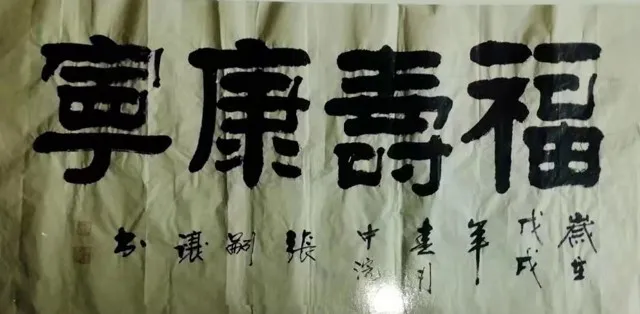 福壽康寧
歲在戊戌年中浣張嗣讓書